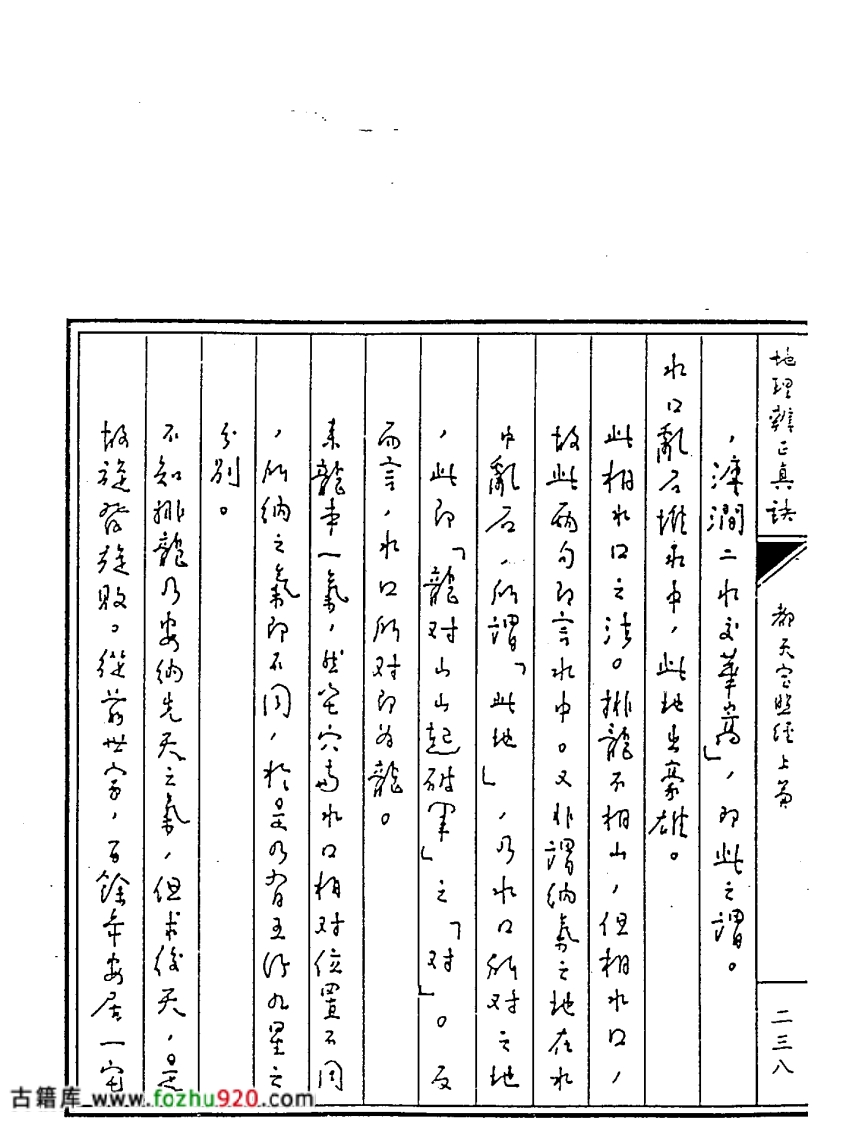 地理辨正真訣
都天宝照經上篇
二三八
，瀍澗二水交華嵩」，即此之謂。
水口亂石堆水中，此地出豪雄。
此相水口之法。排龍不相山，但相水口，
故此兩句即言水中。又非謂納氣之地在水
中亂石，所謂「此地」，乃水口所对之地
，此即「龍对山山起破軍」之「对」。反
而言，水口所对即为龍。
来龍本一氣，然宅穴與水口相对位置不同
，所納之氣即不同，於是乃有五行九星之
分别。
不知排龍乃要納先天之氣，但求後天，是
故旋發旋败。從前世家，百餘年安居一宅
古籍库_www.fozhu920.com